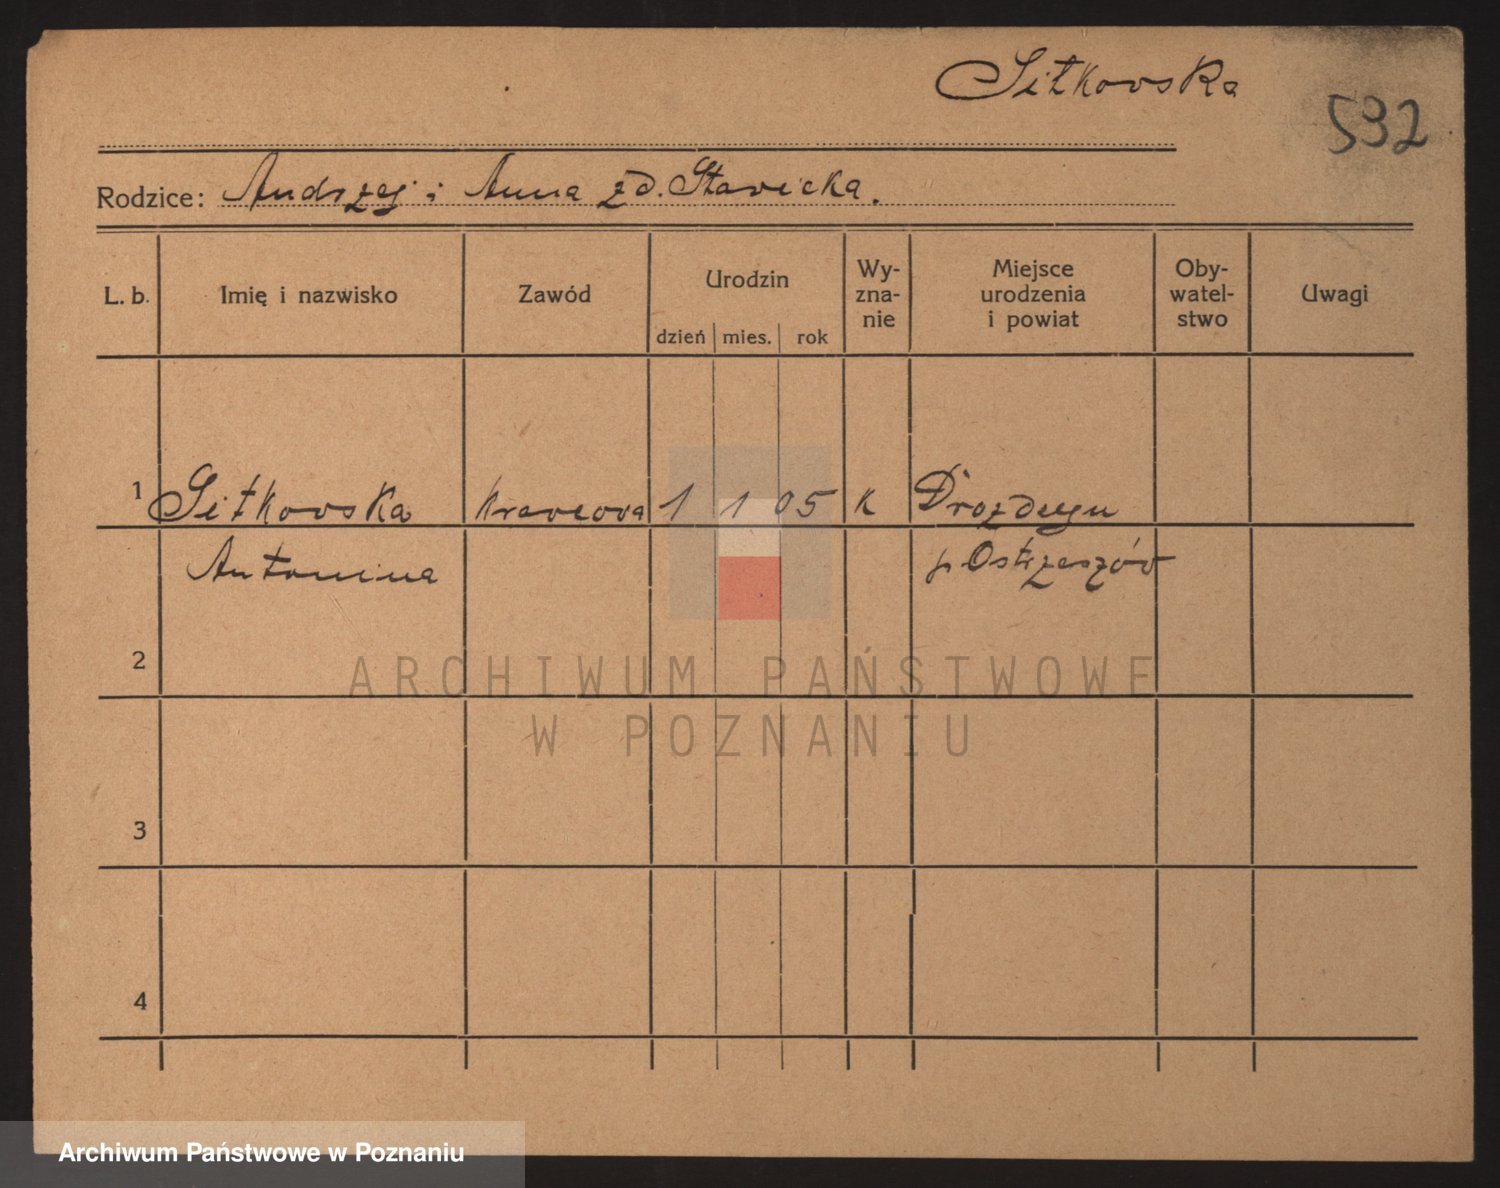 Sitkowska
532
Rodzice: Andrzej i Anna zd. Stawicka.
L. b. Imię i nazwisko Zawód Urodzin dzień mies. rok Wy-zna-nie Miejsce urodzenia i powiat Oby-watel-stwo Uwagi
1 Sitkowska krawcowa 1 1 05 k Drozdzyn
Antonina p Ostrzeszów
2
ARCHIWUM PAŃSTWOWE
W POZNANIU
3
4
Archiwum Państwowe w Poznaniu